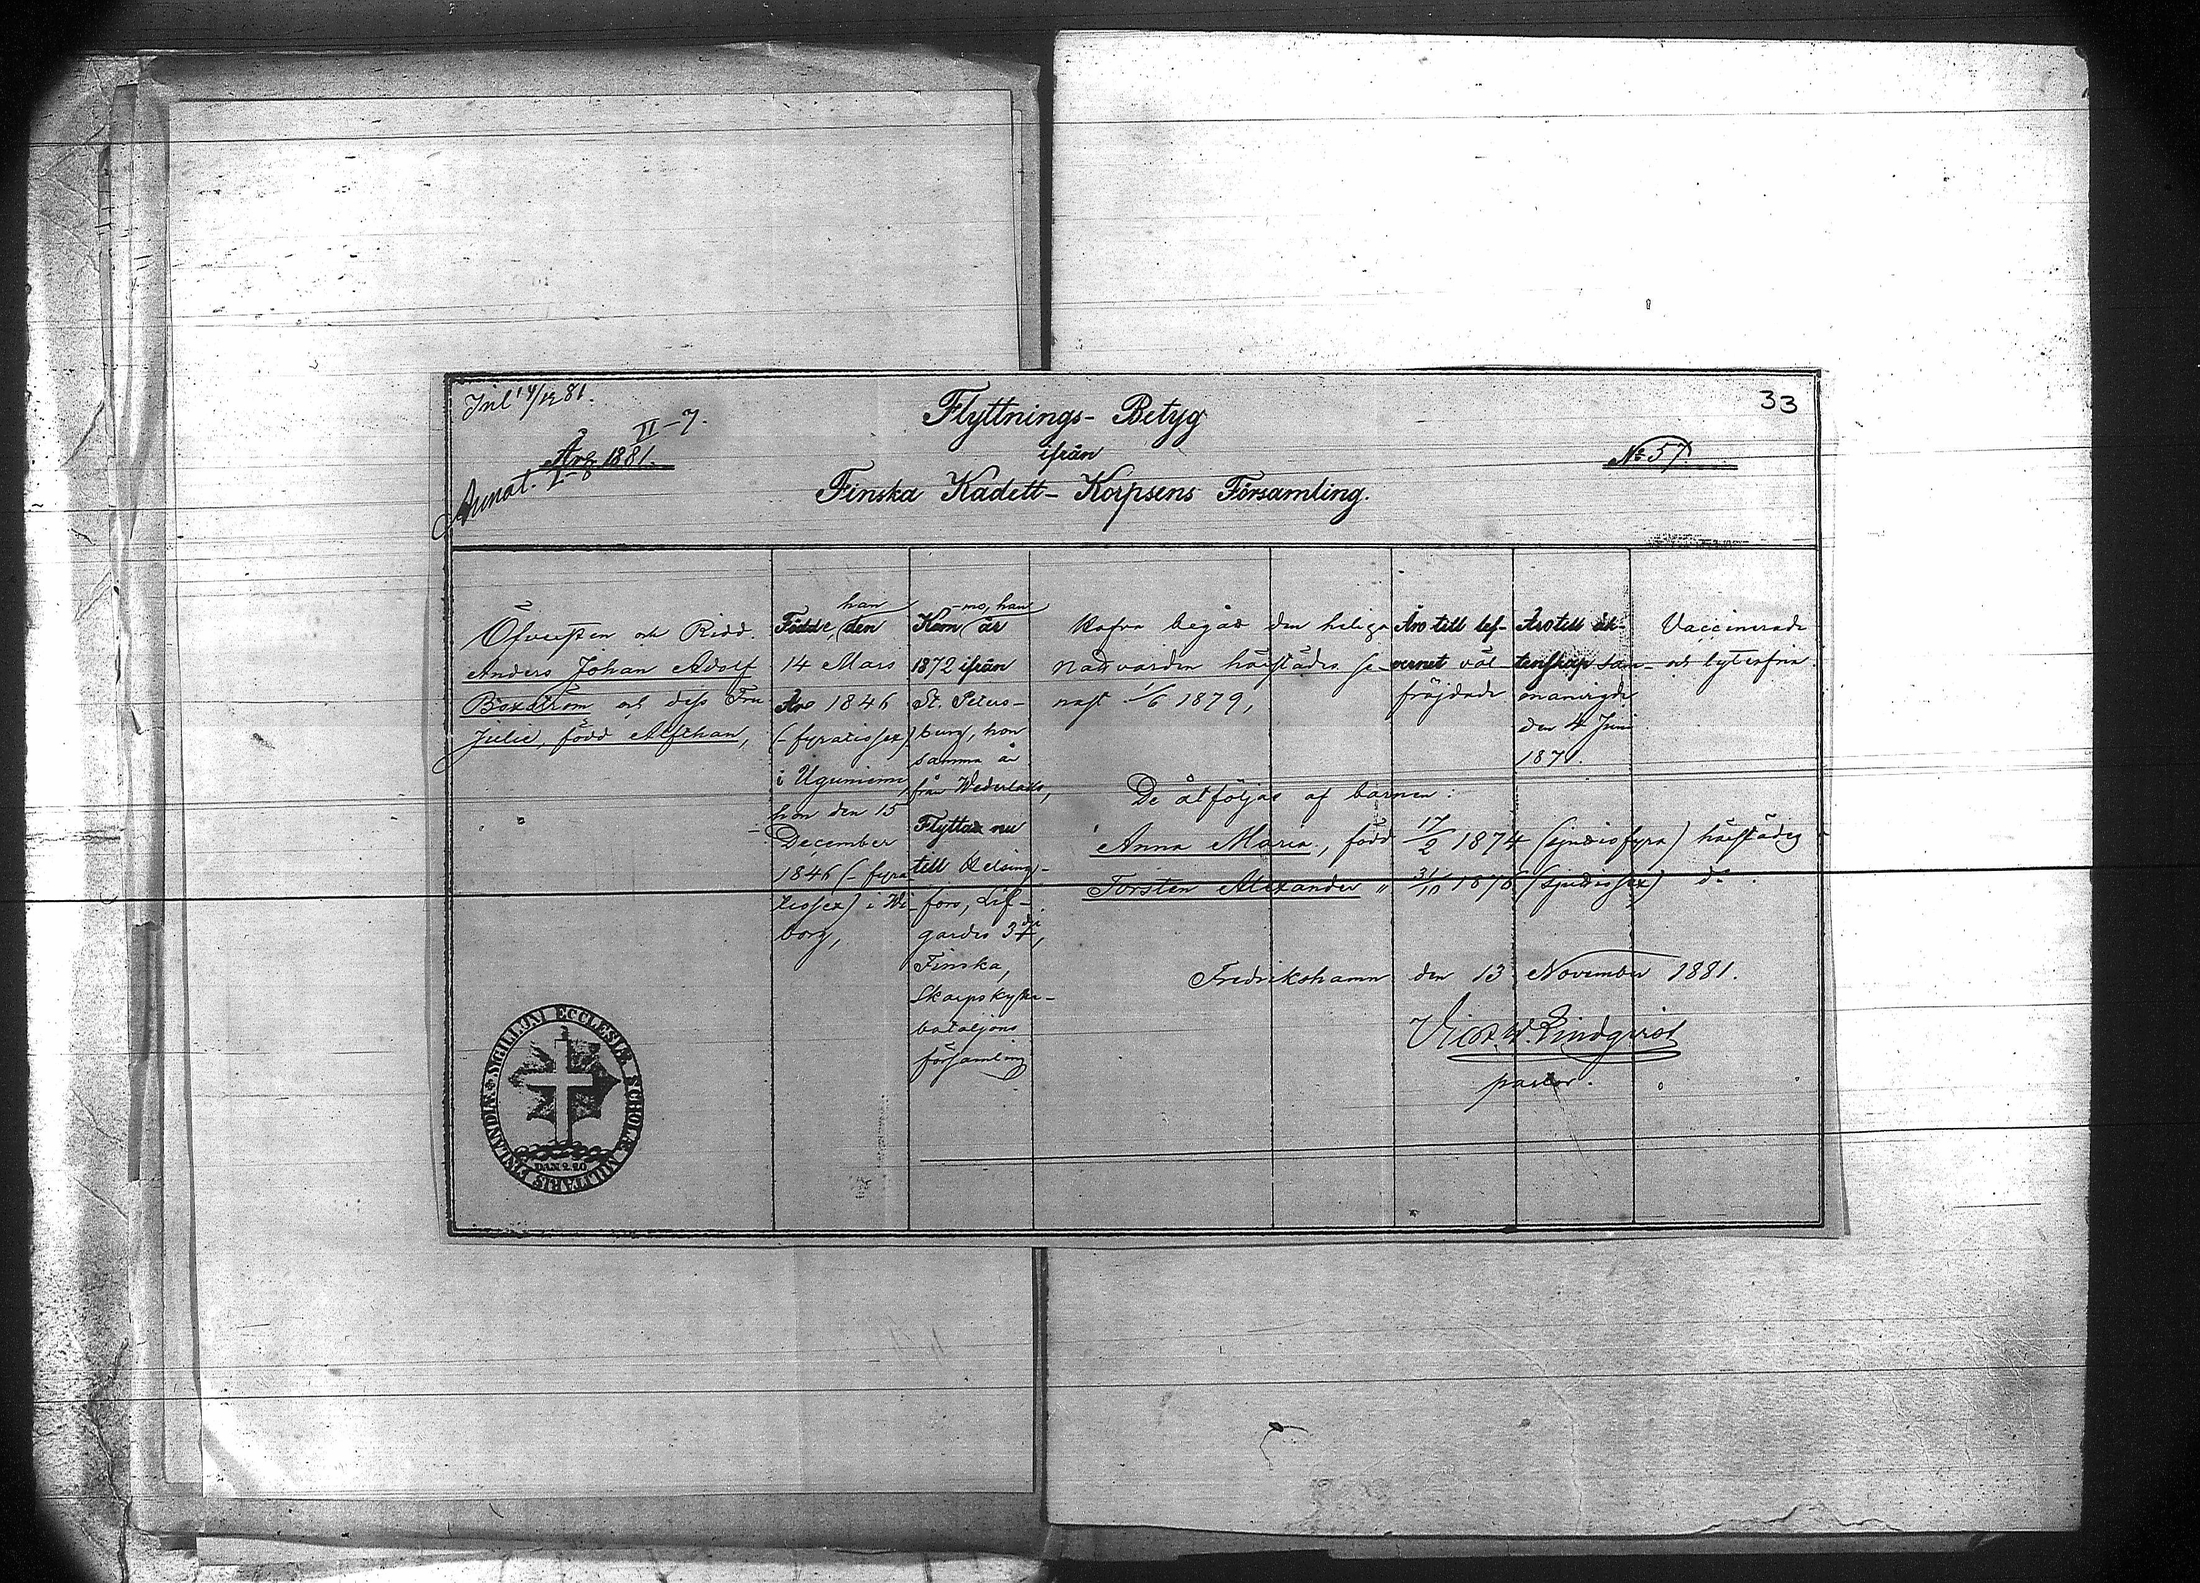 Inl 14/12 81.
33
II-7.
År 1881.
Annot. I-8
Flyttnings-Betyg
ifrån
Finska Kadett-Korpsens Församling.
No 57.
Öfversten och Ridd.
Anders Johan Adolf
Boxström och dess Fru
Julie, född Alfthan,
han
Födde, den
14 Mars
År 1846
(-fyratiosex)
hon den 15
December
1846 (-fyra-
tiosex) i Wi-
borg,
-mo, han
Kom år
1872 ifrån
St. Peters-
burg, hon
samma år
från Wederlaks,
Flyttar nu
till Helsing-
fors, Lif-
gardes 3dje
Finska
Skarpskytte-
bataljons
församling
Hafva begått den heliga
Nattvarden härstädes se-
nast 1/6 1879,
Äro till lef-
vernet väl-
fräjdade
Äro till äk-
tenskap sam-
manvigde
den 4 Juni
187.
Vaccinerade
och lytesfria.
De åtföljas af barnen:
Anna Maria, född 17/2 1874 (sjuttiofyra) härstädes
Torsten Alexander " 31/10 1876 (sjuttiosex) do.
Fredrikshamn den 13 November 1881.
Vict. W. Lindqvist
pastor.
SIGILLUM ECCLESIÆ SCHOLÆ MILITARIS FINLANDIÆ
DAN 2 20